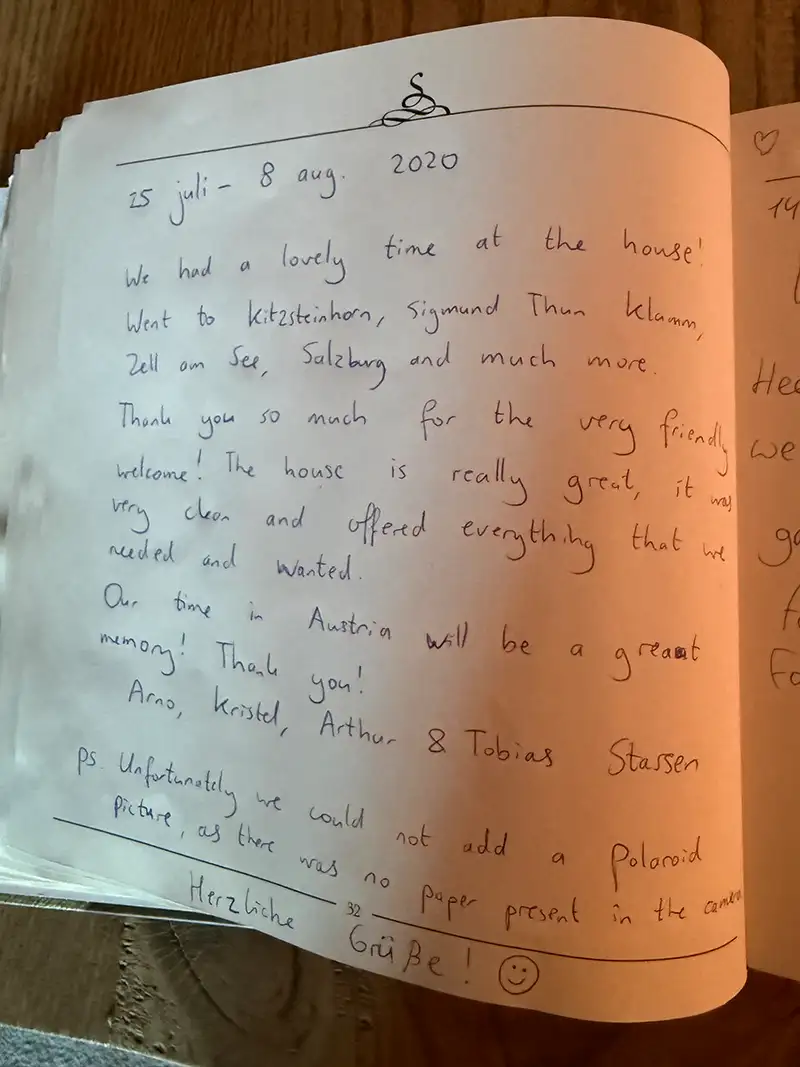 25 juli - 8 aug. 2020
We had a lovely time at the house!
Went to Kitzsteinhorn, Sigmund Thun Klamm,
Zell am See, Salzburg and much more.
Thank you so much for the very friendly
welcome! The house is really great, it was
very clean and offered everything that we
needed and wanted.
Our time in Austria will be a great
memory! Thank you!
Arno, Kristel, Arthur & Tobias Stassen
ps. Unfortunately we could not add a Polaroid
picture, as there was no paper present in the camera
32
Herzliche Grüße! ☺
♡
14
we